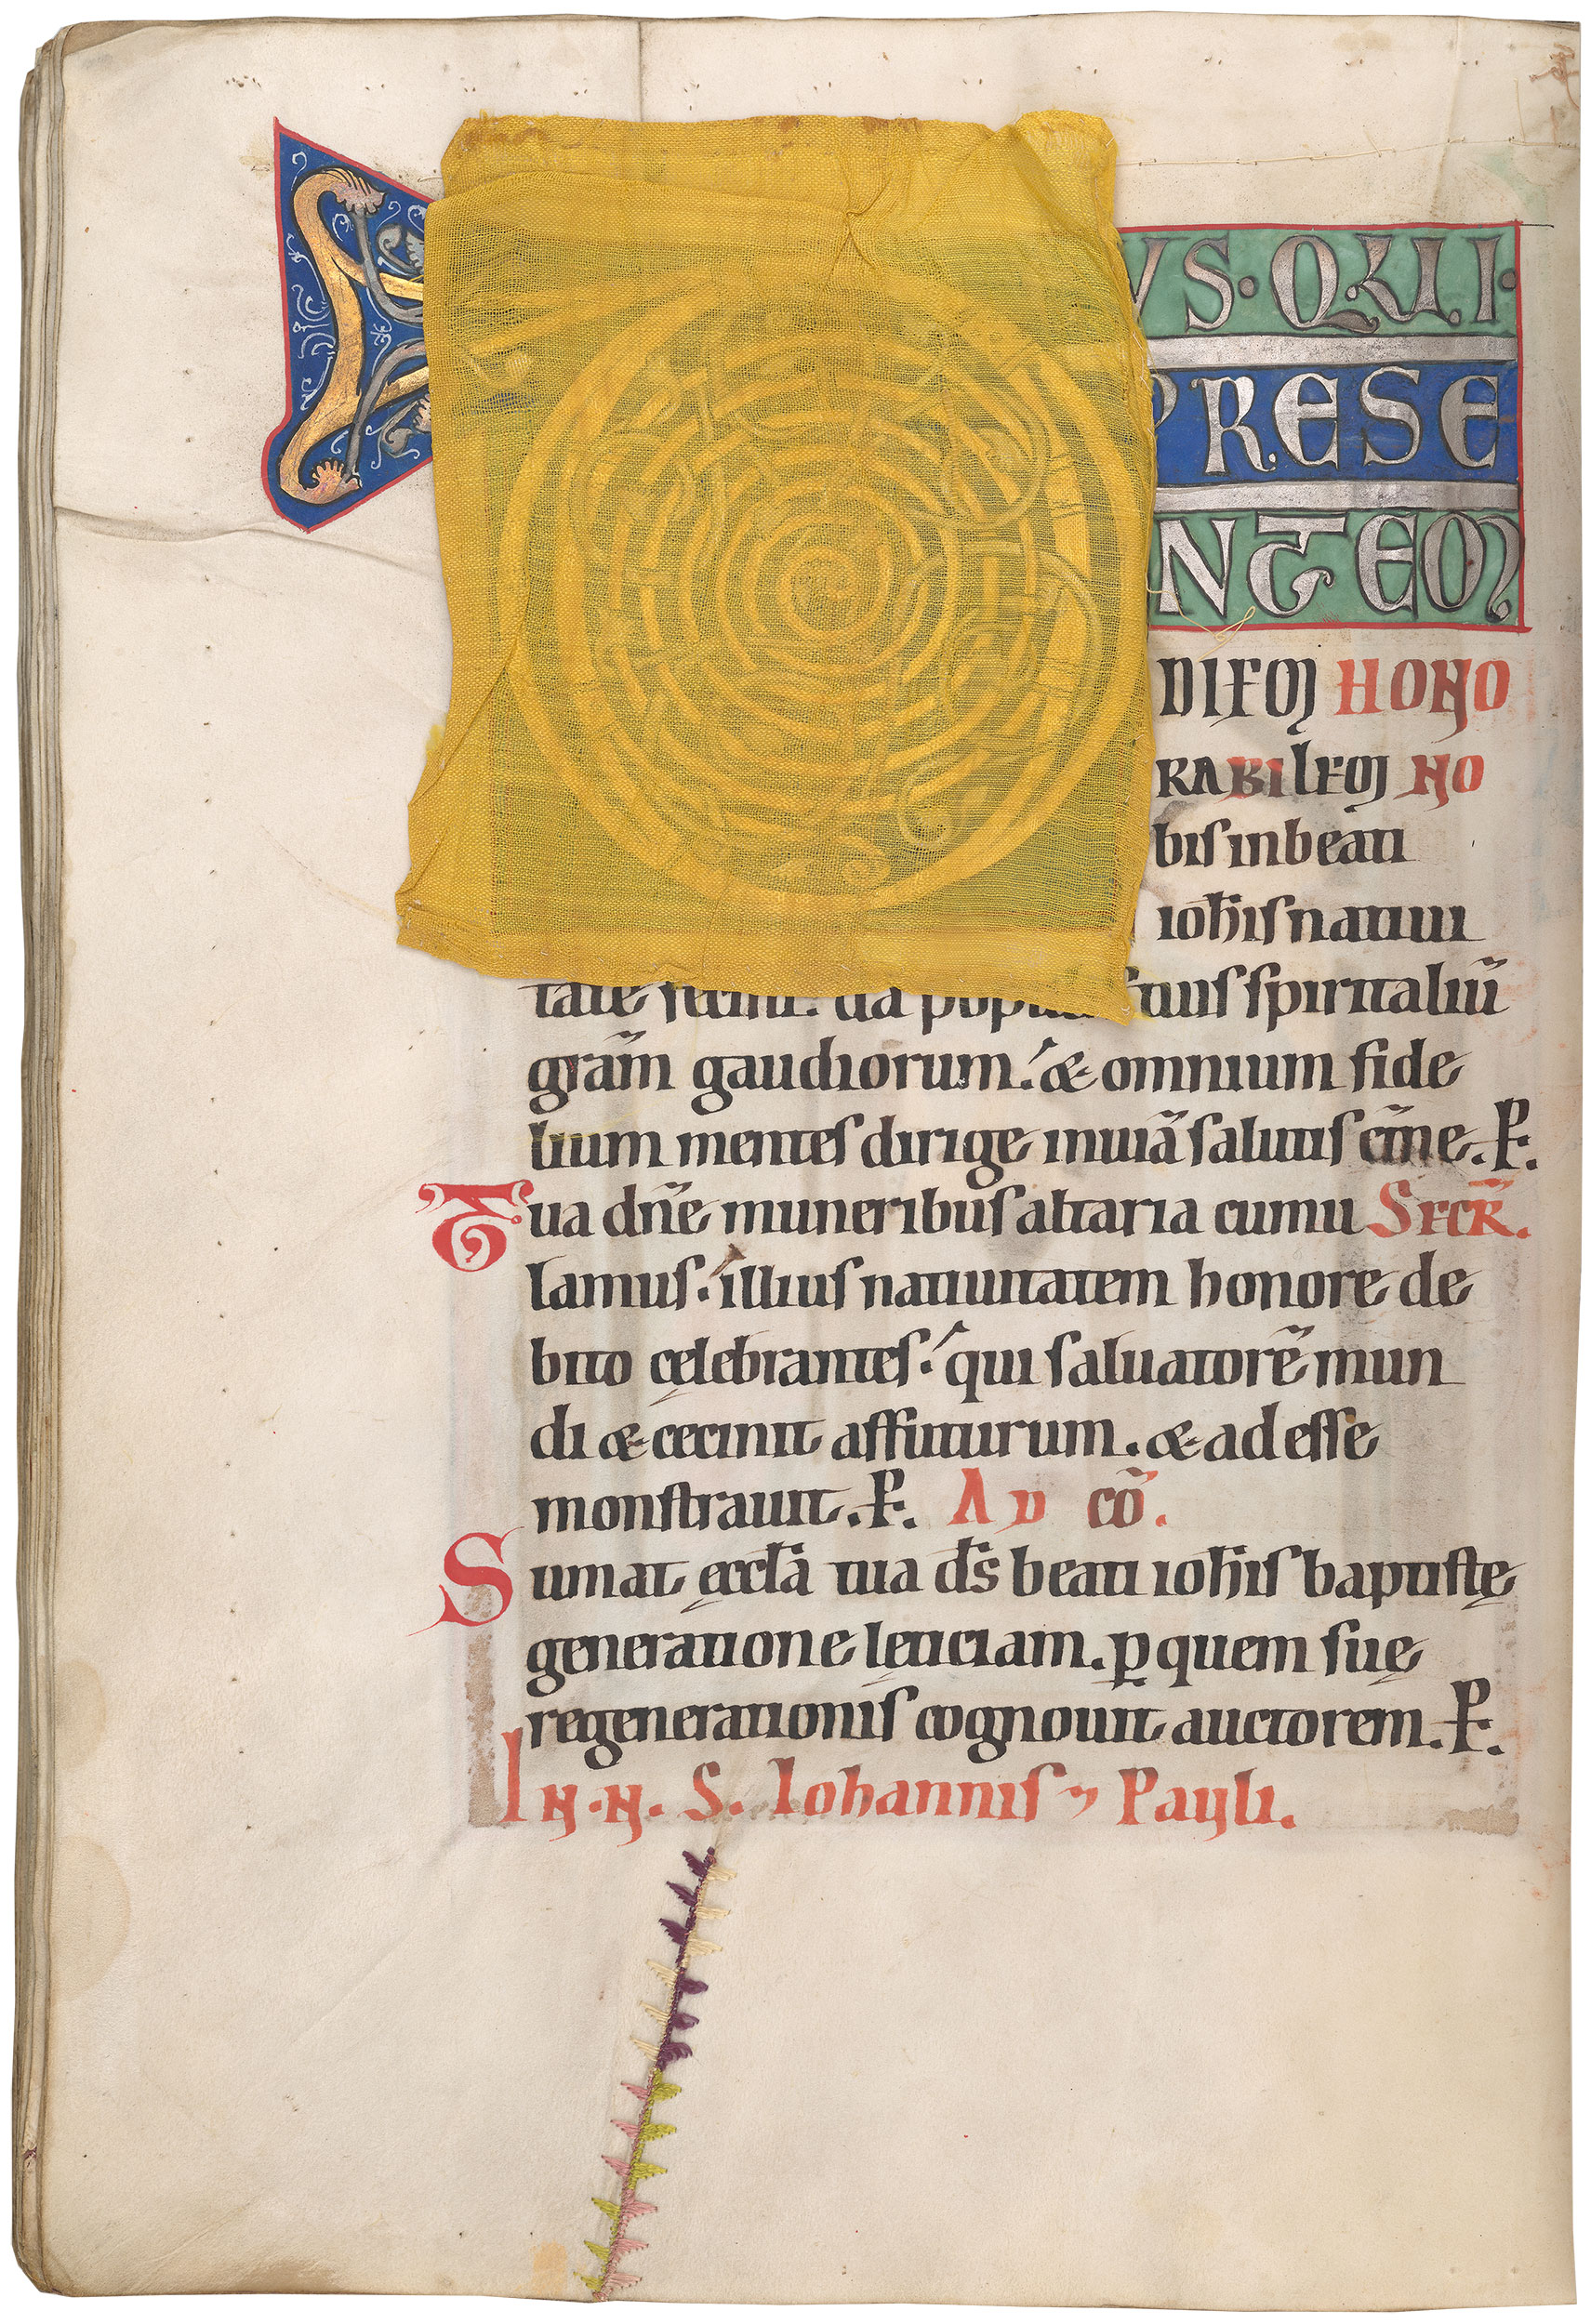 VS · QUI ·
PRESE
NTEM
DIEM HONO
RABILEM NO
biſ in beati
ioh̄iſ natiui
tate tuiſ ſpiritaliū
gr̄am gaudiorum. & omnium fide
lium menteſ dirige in uiā ſalutiſ et̄ne. P.
Tua dn̄e muneribuſ altaria cumu SECR̄.
lamuſ. illiuſ natiuitatem honore de
bito cęlebranteſ. qui ſaluatorē mun
di & cecinit affuturum. & adeſſe
monſtrauit. P. AD cō.
Sumat ęccl̄a tua d̄s beati ioh̄iſ baptiſtę
generatione lęticiam. ꝑ quem ſuę
regenerationiſ cognouit auctorem. P.
IN. N. S. Iohanniſ ⁊ Pauli.